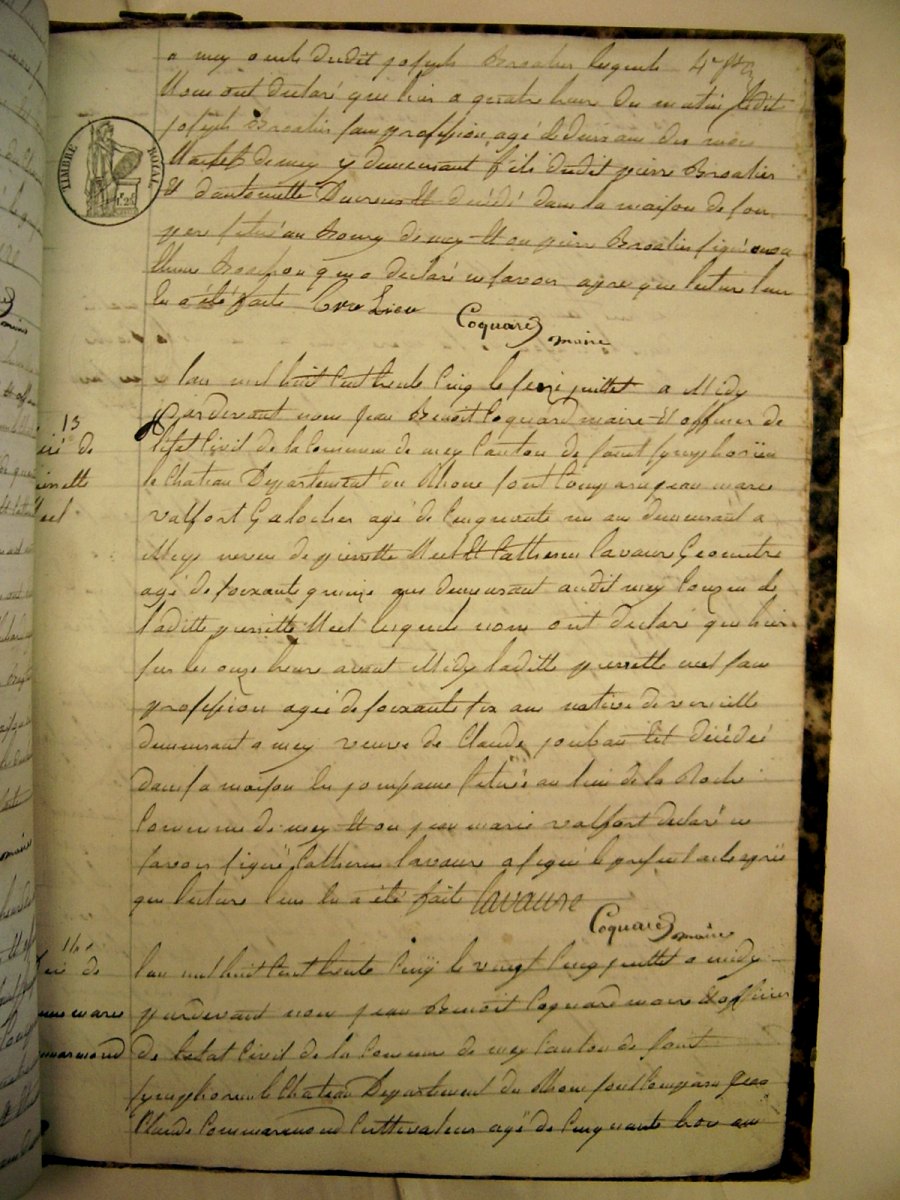 a mey oncle dudit joseph Broalier lesquels
Nous ont declaré que hier a quatre heur du matin ledit
joseph Broalier sans profession agé de
de mey y demeurant fils dudit pierre Broalier
Et dantoinette Ducreux Et décédé dans la maison de son
pere situé au bourg de mey Et ou pierre Broalier
que a declaré ne savoir apre que lecture leur
la a été faite
Coquard maire
TIMBRE ROYAL
1f 25
lan mil huit cent trente cinq le seize juillet a Midy
13
pardevant nous jean Benoit Coquard maire Et officier de
de
letat Civil de la Commune de mey Canton de saint symphorien
le Chateau Departement du Rhone sont Comparu jean marie
valfort Galocher agé de Cinquante un an demeurant a
Meys neveu de pierrette Meel Et Catherin lavaure Geometre
agé de soixante quinze ans demeurant audit mey Couzin de
laditte pierrette Meel lesquels nous ont declaré que hier
sur les onze heure avant Midy laditte pierrette meel sans
profession agée de soixante six ans native de
demeurant a mey veuve de Claude joubau Est décédée
dans sa maison situé au lieu de la Roche
Commune de mey Et ou jean marie valfort declaré ne
savoir signé, Catherin lavaure a signé le present acte apré
que lecture leur la a été fait lavaure
Coquard maire
14
de
marie
lan mil huit cent trente cinq le vingt cinq juillet a midy
pardevant nous jean Benoit Coquard maire Et officier
de letat Civil de la Commune de mey Canton de saint
symphorien le Chateau Departement du Rhone sont Comparu jean
Claude Commarmond Cultivateur agé de Cinquante trois ans